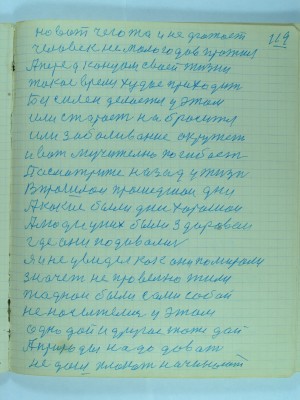 119
не дожает
человек не мало годов прожил
А перед концом своей жизни
такое время худое приходит
Бессилен делается у этом
или старость на бросится
или заболивание окружет
и вот мучително погибает
Посматрите назад у жизн
В прошлом прошедшом дни
А какие были дни хорошои
А люди у них были здаравои
где они подивались
Я и не увидел как они помирали
значет не провелно жили
жадном были сами собой
не носители у этом
одно дай и другое тоже дай
А природи надо довать
не дош плакат начинают